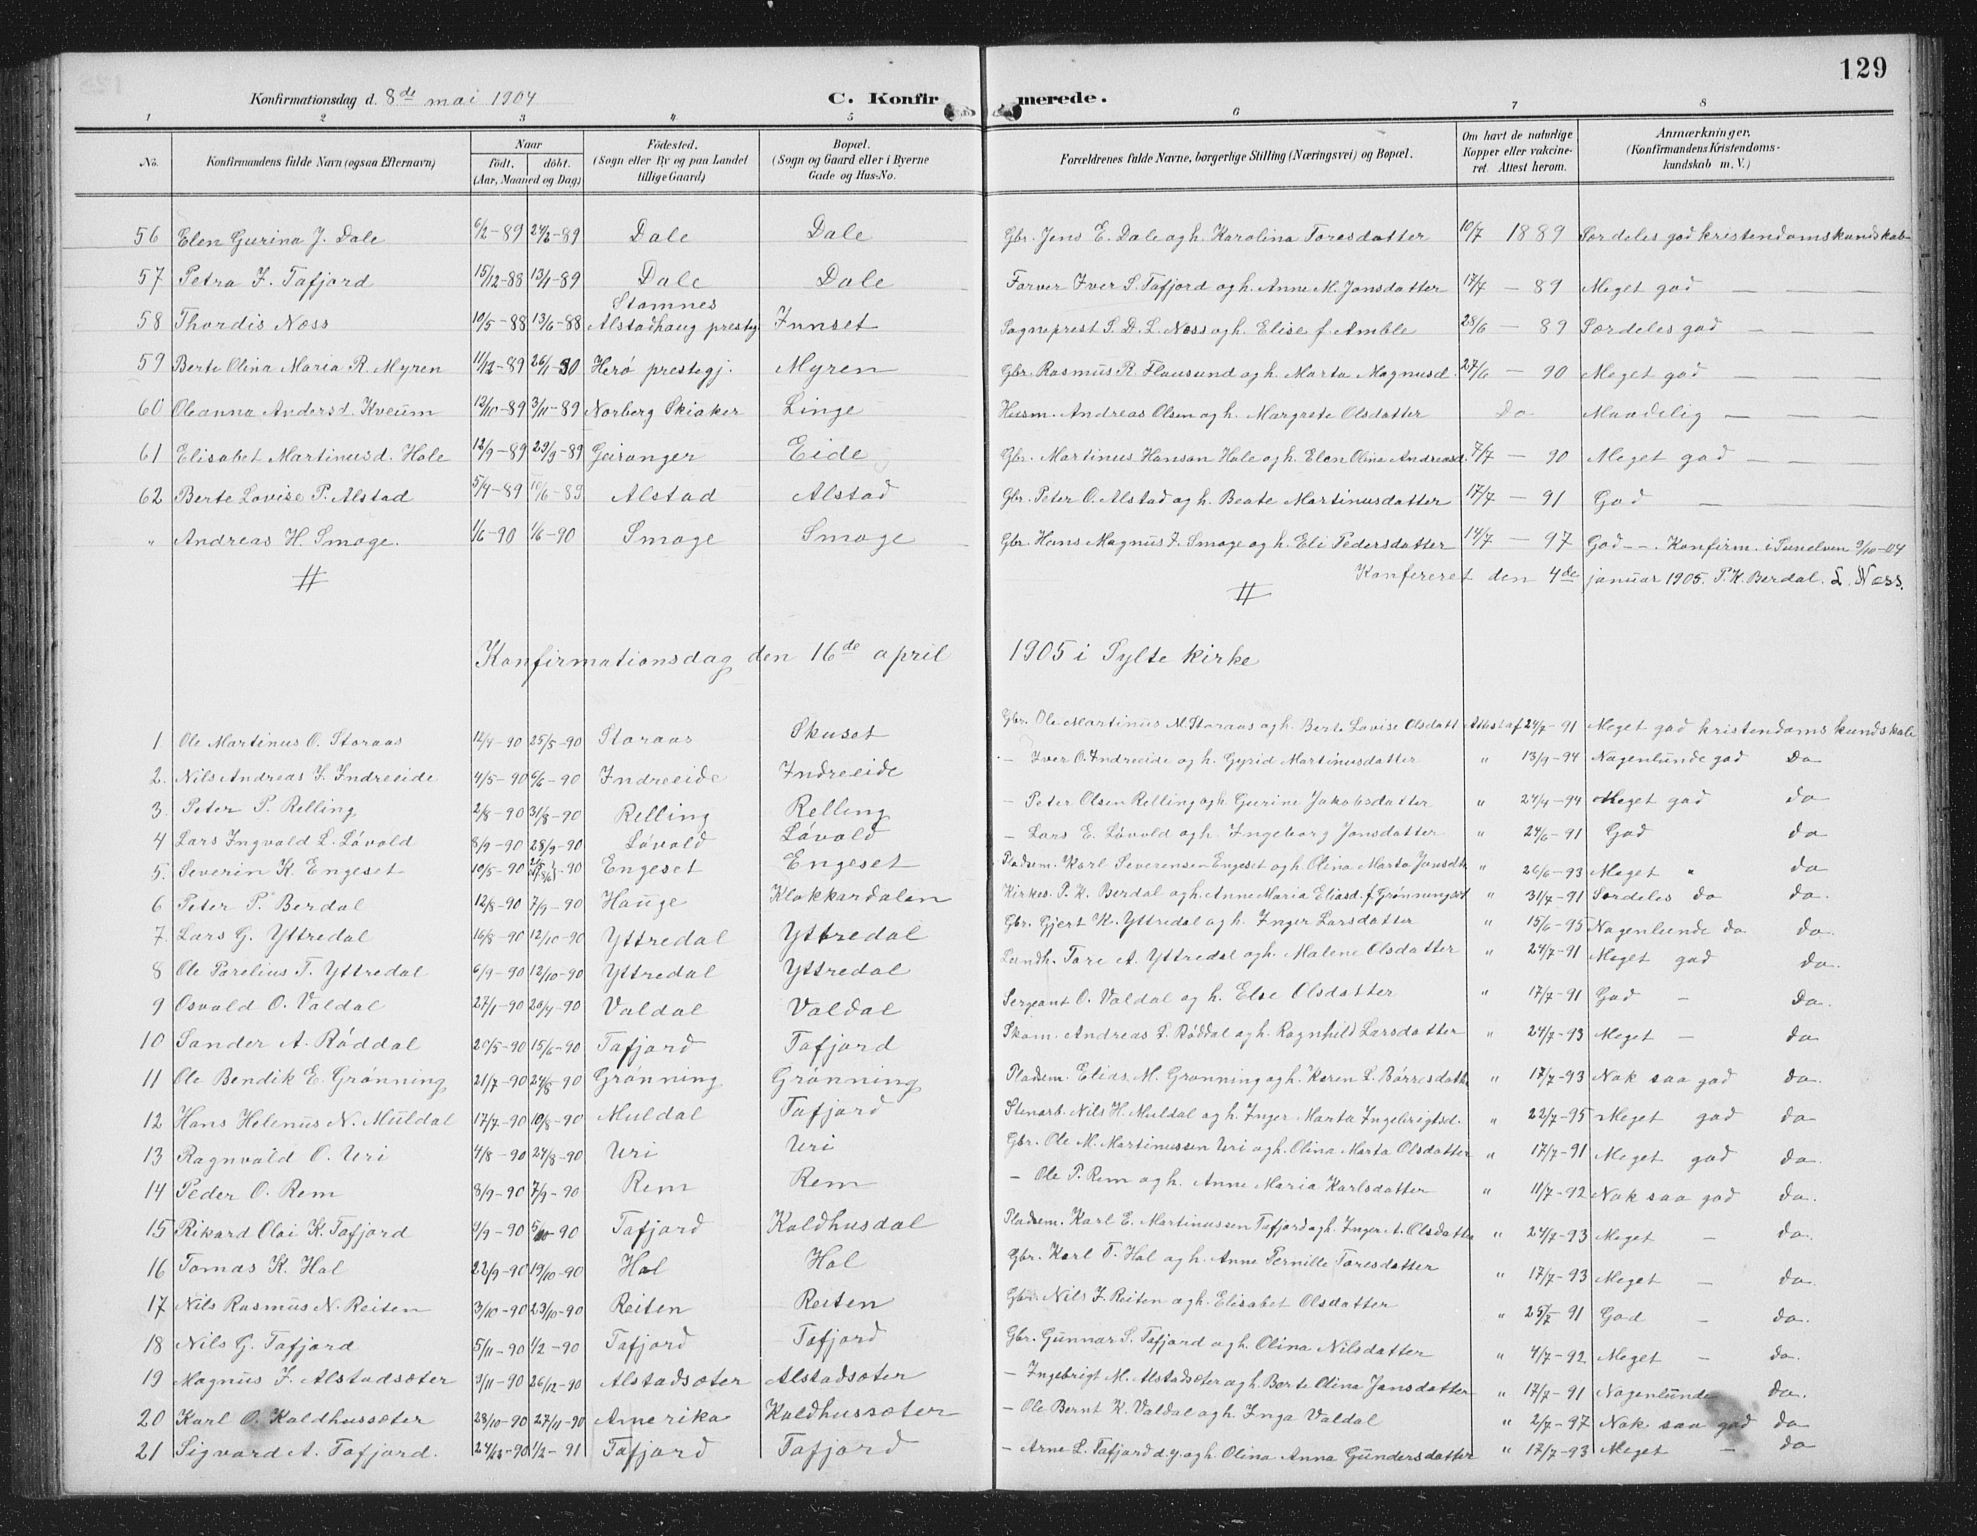 129
Konfirmationsdag d. 8de mai 1904 C. Konfirmerede.
1 2 3 4 5 6 7 8
No. Konfirmandens fulde Navn (ogsaa Efternavn) Naar født. døbt. (Aar, Maaned og Dag) Fødested. (Sogn eller By og paa Landet tillige Gaard) Bopæl. (Sogn og Gaard eller i Byerne Gade og Hus-No. Forældrenes fulde Navne, borgerlige Stilling (Næringsvei) og Bopæl. Om havt de naturlige Kopper eller vakcineret. Attest herom. Anmærkninger. (Konfirmandens Kristendomskundskab m. V.)
56 Elen Gurina J. Dale 6/2-89 24/2-89 Dale Dale Gbr. Jens E. Dale og h. Karolina Toresdatter 10/7 1889 Særdeles god kristendomskundskab
57 Petra I. Tafjord 15/12-88 13/1-89 Dale Dale Farver Iver S. Tafjord og h. Anne M. Jonsdatter 17/7 - 89 Meget god
58 Thordis Næss 10/5-88 13/6-88 Stamnes Alstadhaug presteg. Innset Sogneprest S. D. L. Næss og h. Elise f. Amble 28/6 - 89 Særdeles god
59 Berte Olina Maria R. Myren 11/12-89 26/1-90 Herø prestegj. Myren Gbr. Rasmus R. Flausund og h. Marta Magnusd. 27/6 - 90 Meget god
60 Oleanna Andersd. Kveum 12/10-89 3/11-89 Norberg Skiaker Linge Husm. Andreas Olsen og h. Margrete Olsdatter Do Maadelig
61 Elisabet Martinusd. Hole 12/9-89 29/9-89 Geiranger Eide Gbr. Martinus Hanson Hole og h. Elen Olina Andreasd. 7/7 - 90 Meget god
62 Berte Lovise P. Alstad 5/4-89 10/6-89 Alstad Alstad Gbr. Peter O. Alstad og h. Beate Martinusdatter 17/7 - 91 God
" Andreas H. Smoge. 1/6-90 1/6-90 Smoge Smoge Gbr. Hans Magnus I. Smoge og h. Eli Pedersdatter 14/7 - 97 God - -. Konfirm. i Sunelven 9/10-04
Konfereret den 4de januar 1905. P. K. Berdal. L. Næss.
Konfirmationsdag den 16de april 1905 i Sylte kirke
1 Ole Martinus O. Storaas 14/4-90 25/5-90 Storaas Skuset Gbr. Ole Martinus M. Storaas og h. Berte Lovise Olsdatt Attest af 24/7-91 Meget god kristendomskundskab
2. Nils Andreas I. Indreeide 4/5-90 6/6-90 Indreeide Indreeide - Iver O. Indreeide og h. Gyrid Martinusdatter " 13/9-94 Nogenlunde god Do
3. Peter P. Relling 2/8-90 31/8-90 Relling Relling - Peter Olsen Relling og h. Gurine Jakobsdatter " 24/4-94 Meget god do
4 Lars Ingvald L. Løvold 8/9-90 28/9-90 Løvold Løvold - Lars E. Løvold og h. Ingeborg Jonsdatter " 24/6-91 God do
5. Severin K. Engeset 10/5-90 Engeset Engeset Pladsm. Karl Severensen Engeset og h. Olina Marta Jonsdtr " 26/6-93 Meget " do
6 Peter P. Berdal 12/8-90 7/9-90 Hauge Klokkardalen Kirkes. P. K. Berdal og h. Anne Maria Eliasd. f. Grønningsæt " 31/7-91 Særdeles do do.
7. Lars G. Yttredal 16/8-90 12/10-90 Yttredal Yttredal Gbr. Gjert K. Yttredal og h. Inger Larsdatter " 15/6-95 Nogenlunde do do.
8 Ole Parelius T. Yttredal 6/9-90 12/10-90 Yttredal Yttredal Landh. Tore A. Yttredal og h. Malene Olsdatter " 24/7-91 Meget god do.
9 Osvald O. Valdal 27/1-90 20/4-90 Valdal Valdal Sergeant O. Valdal og h. Else Olsdatter " 17/7-91 God - Do.
10 Sander A. Røddal 20/5-90 15/6-90 Tafjord Tafjord Skom. Andreas S. Røddal og h. Ragnhild Larsdatter " 24/7-93 Meget - do
11 Ole Bendik E. Grønning 21/7-90 24/8-90 Grønning Grønning Pladsm. Elias M. Grønning og h. Karen L. Børresdatter " 17/7-93 Nok saa god do.
12 Hans Helenus N. Muldal 17/7-90 10/8-90 Muldal Tafjord Stenarb. Nils H. Muldal og h. Inger Marta Ingebrigtsd. " 22/7-95 Meget god do
13 Ragnvald O. Uri 4/8-90 24/8-90 Uri Uri Gbr. Ole M. Martinussen Uri og h. Olina Marta Olsdatter " 17/7-91 Meget god do.
14 Peder O. Rem 8/9-90 7/9-90 Rem Rem - Ole P. Rem og h. Anne Maria Karlsdatter " 11/7-92 Nok saa god do.
15 Rikard Olai K. Tafjord 9/9-90 5/10-90 Tafjord Kaldhusdal Pladsm. Karl E. Martinussen Tafjord og h. Inger A. Olsdatter " 24/7-93 Meget - do.
16 Tomas K. Hol 22/9-90 19/10-90 Hol Hol Gbr. Karl T. Hol og h. Anne Pernille Toresdatter " 17/7-93 Meget - do
17 Nils Rasmus N. Reiten 3/10-90 23/10-90 Reiten Reiten Gbr. Nils I. Reiten og h. Elisabet Olsdatter " 25/7 91 God - do.
18 Nils G. Tafjord 5/11-90 1/2-90 Tafjord Tafjord Gbr. Gunnar S. Tafjord og h. Olina Nilsdatter " 4/7-92 Meget - do.
19 Magnus I. Alstadsæter 9/11-90 26/12-90 Alstadsæter Alstadsæter - Ingebrigt M. Alstadsæter og h. Berte Olina Jonsdatter " 17/7-91 Nogenlunde do.
20 Karl O. Kaldhussæter 28/10-90 27/11-90 Amerika Kaldhussæter - Ole Bernt K. Valdal og h. Inga Valdal " 2/7-97 Nok saa god do
21 Sigvard A. Tafjord. 24/12-90 1/2-91 Tafjord Tafjord - Arne L. Tafjord d.y. og h. Olina Anna Gundersdatter " 17/7-93 Meget - do